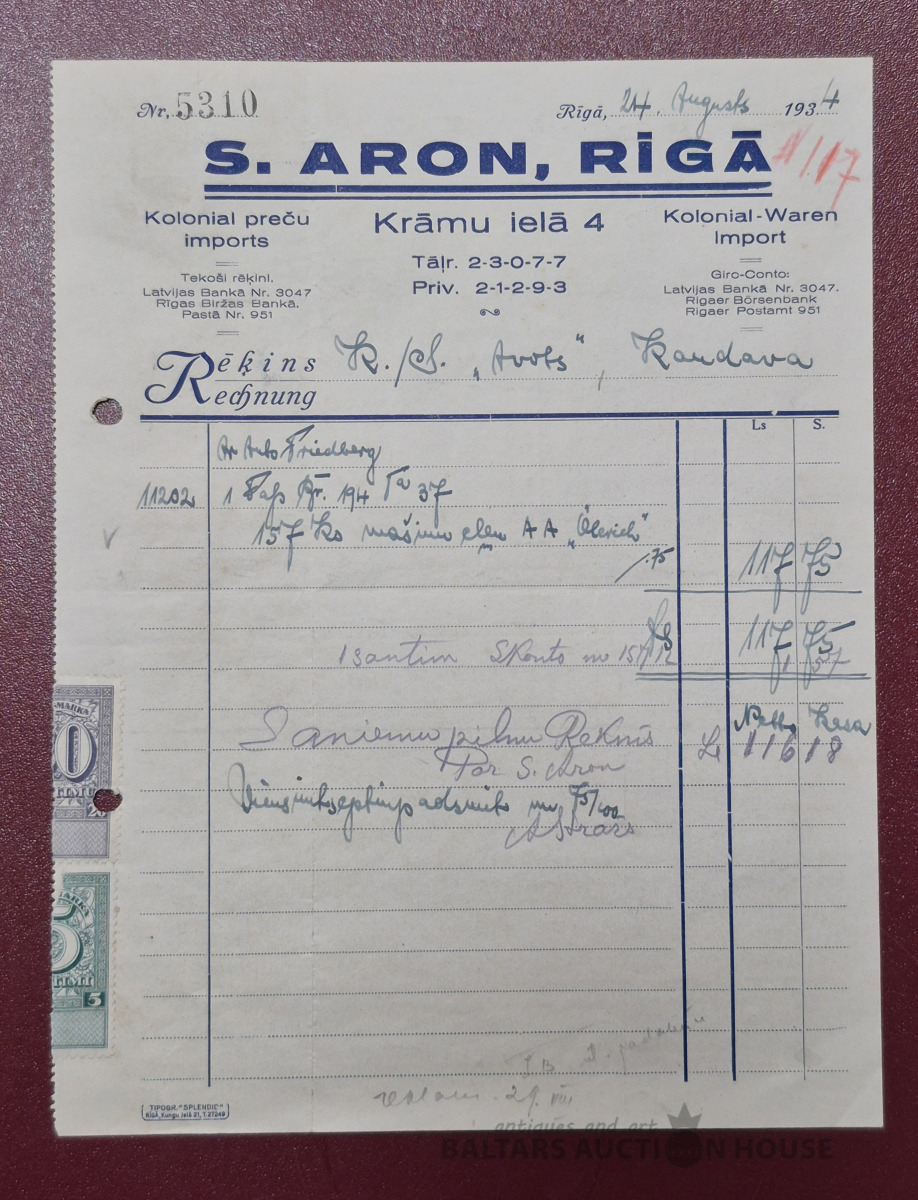 Nr. 5310
Rīgā, 24. Augusts 1934
S. ARON, RĪGĀ
Kolonial preču
imports
Krāmu ielā 4
Kolonial-Waren
Import
Tāļr. 2-3-0-7-7
Priv. 2-1-2-9-3
Tekoši rēķini.
Latvijas Bankā Nr. 3047
Rīgas Biržas Bankā.
Pastā Nr. 951
Giro-Conto:
Latvijas Bankā Nr. 3047.
Rigaer Börsenbank
Rigaer Postamt 951
Rēķins
Rechnung
K./S. „Avots", Kandava
Ls S.
Friedberg
11202 1 Faß Br. 194 Ta 37
157 Ko mašinu eļļu AA
/.75 117 75
Ls 117 75
1 santim Skonto no 157 1 57
Netto Kasa
Saņemu pilnu Rēķins Ls 116 18
Par S. Aron
Viensimtsseptiņpadsmits un 75/100
29. VIII
MARKA
0
MARKA
5
5
TIPOGR. "SPLENDID"
RĪGĀ, Kungu ielā 21, T.27249
antiques and art
BALTARS AUCTION HOUSE